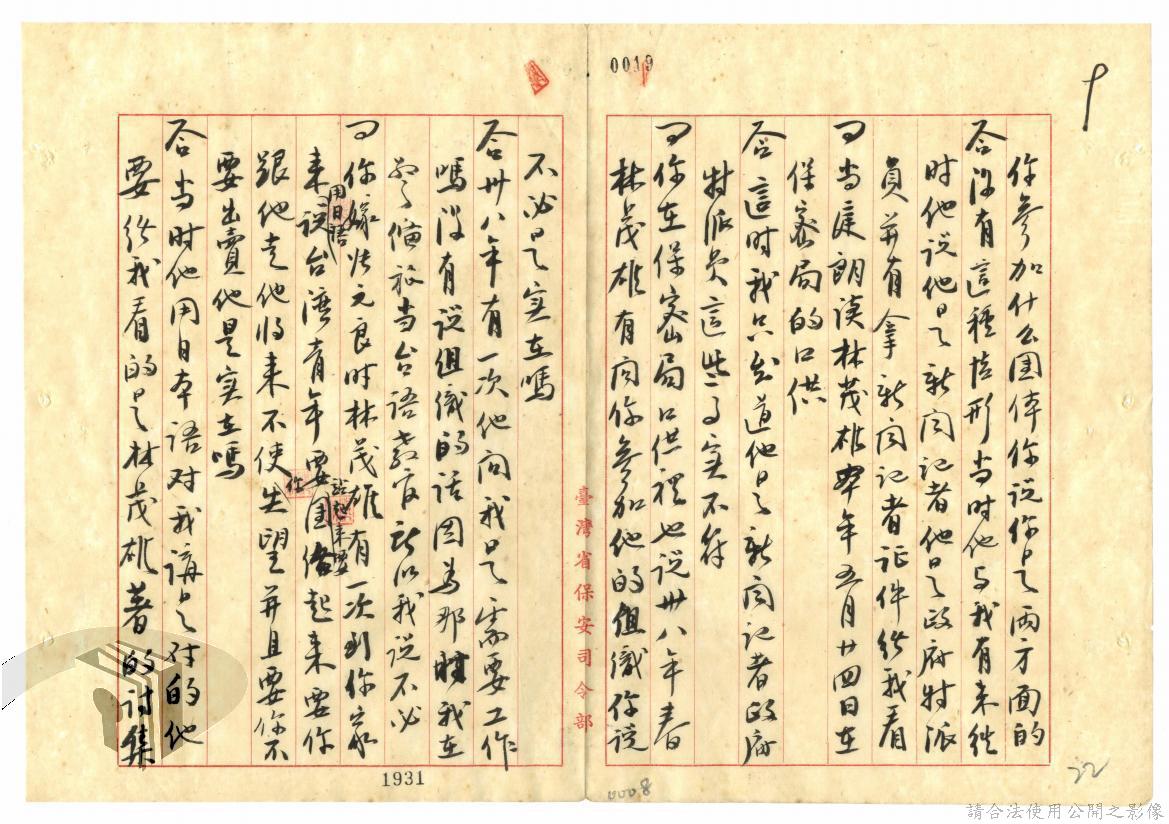 0019
你參加什么团体你说你是两方面的
答沒有這種情形当时他与我有来往
时他说他是新闻记者他是政府特派
員并有拿新闻记者证件给我看
问当庭朗读林茂雄 年五月廿四日在
保密局的口供
答這时我只知道他是新闻记者政府
特派员這些事实不符
问你在保密局口供裡也说卅八年春
林茂雄有向你参加他的组織你说
臺灣省保安司令部
不必是实在嗎
答卅八年有一次他问我是需要工作
嗎沒有说组織的话因為那时我在
当台语教官所以我说不必
问你嫁张元良时林茂雄有一次到你家
来用日语说台湾青年要团结起来要你
跟他走他将来不使你失望并且要你不
要出賣他是实在嗎
答当时他用日本语对我講是对的他
要给我看的是林茂雄著的诗集
1931
0008
22
請合法使用公開之影像